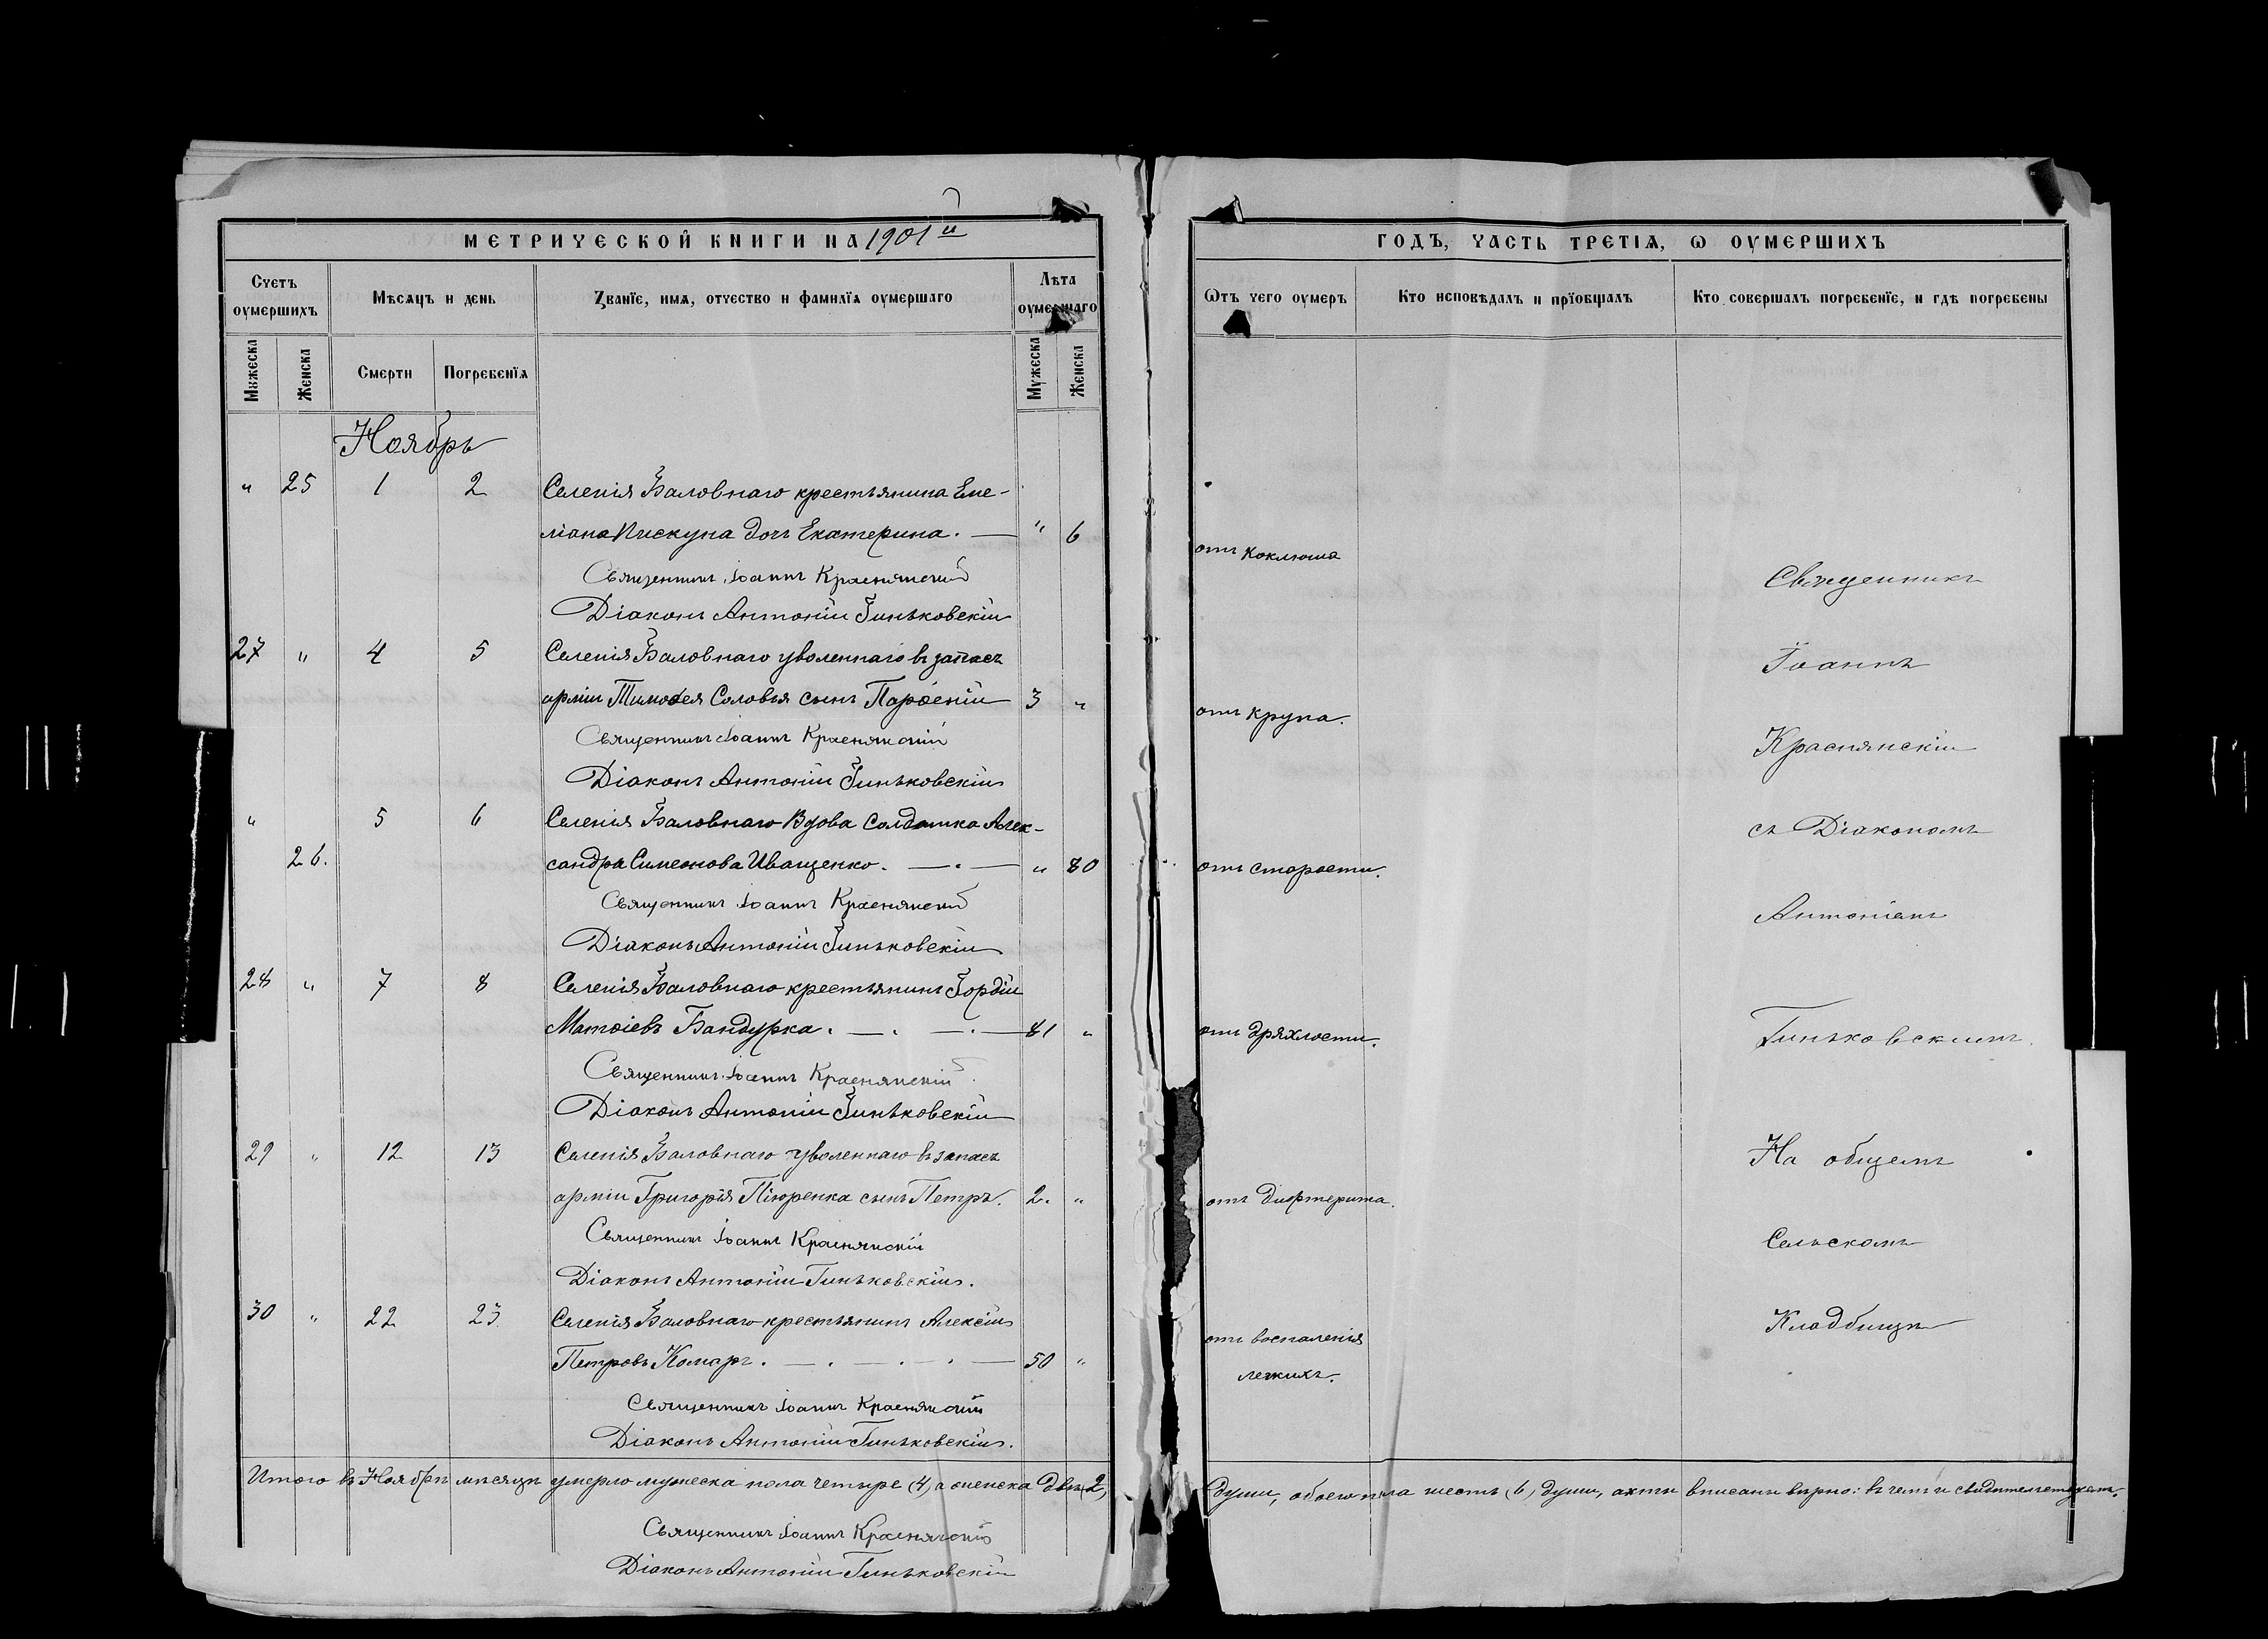 МЕТРИЧЕСКОЙ КНИГИ НА 1901й
Счетъ оумершихъ
Мѣсѧцъ и день
Ꙁванїе, имѧ, отчество и фамилїѧ оумершаго
Лѣта оумершаго
Мꙋжеска
Женска
Смерти
Погребенїѧ
Мꙋжеска
Женска
Ноябрь
" 25 1 2 Селенія Баловнаго крестьянина Еме-
ліана Пискуна дочь Екатерина. — " 6
Священникъ Іоаннъ Краснянскій
Діаконъ Антоній Гиньковскій
27 " 4 5 Селенія Баловнаго уволеннаго въ запасъ
арміи Тимоѳея Соловья сынъ Парѳеній 3 "
Священникъ Іоаннъ Краснянскій
Діаконъ Антоній Гиньковскій
" 5 6 Селенія Баловнаго Вдова Солдатка Алек-
26. сандра Симеонова Иващенко. — . — " 80
Священникъ Іоаннъ Краснянскій
Діаконъ Антоній Гиньковскій
28 " 7 8 Селенія Баловнаго крестьянинъ Гордій
Матѳіевъ Бандурка. — . — . — 81 "
Священникъ Іоаннъ Краснянскій
Діаконъ Антоній Гиньковскій
29 " 12 13 Селенія Баловнаго уволеннаго въ запасъ
арміи Григорія Піюренка сынъ Петръ. 2. "
Священникъ Іоаннъ Краснянскій
Діаконъ Антоній Гиньковскій.
30 " 22 23 Селенія Баловнаго крестьянинъ Алексій
Петровъ Комаръ. — . — . — . — 50 "
Священникъ Іоаннъ Краснянскій
Діаконъ Антоній Гиньковскій.
Итого въ Ноябрѣ мѣсяцѣ умерло мужеска пола четыре (4) а женска двѣ (2)
Священникъ Іоаннъ Краснянскій
Діаконъ Антоній Гиньковскій
ГОДЪ, ЧАСТЬ ТРЕТІѦ, Ѡ ОУМЕРШИХЪ
Ѿтъ чего оумеръ
Кто исповѣдалъ и прїобщалъ
Кто совершалъ погребенїе, и гдѣ погребены
отъ коклюша
Священникъ
Іоаннъ
отъ крупа.
Краснянскій
съ Діакономъ
отъ старости.
Антоніемъ
отъ дряхлости.
Гиньковскимъ.
На общемъ
отъ дифтерита.
Сельскомъ
Кладбищѣ
отъ воспаленія
легкихъ.
души, обоего пола шесть (6) души, акты вписаны вѣрно: въ чемъ и свидѣтельствуемъ.